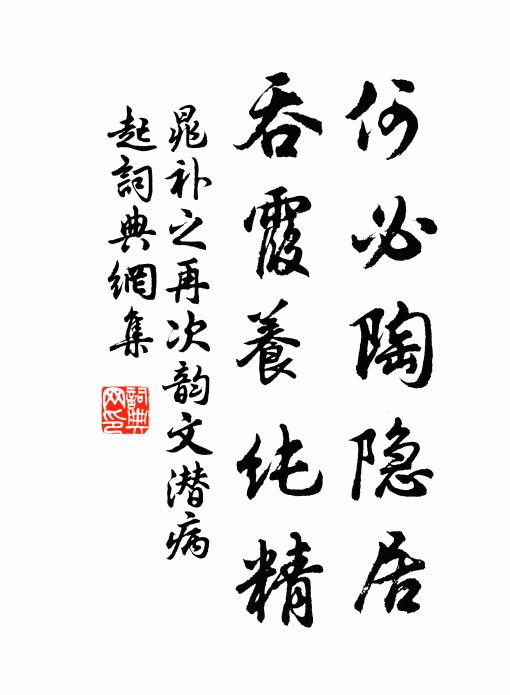 何必陶隐居
吞霞養纯精
晁补之再次韵文潜病
起詞典網集
詞典
网印